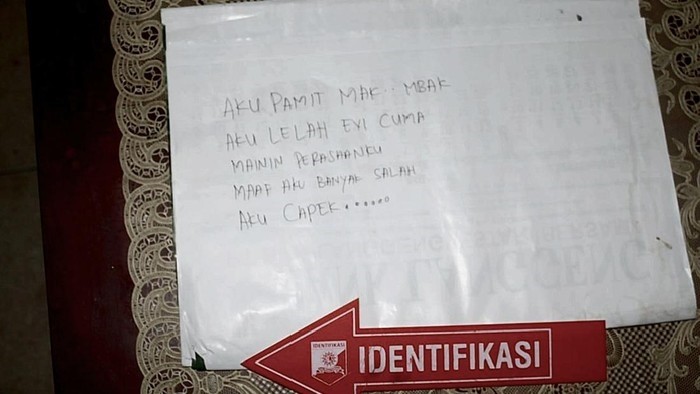 AKU PAMIT MAK.. MBAK
AKU LELAH EVI CUMA
MAININ PERASAANKU
MAAF AKU BANYAK SALAH
AKU CAPEK.......
IDENTIFIKASI